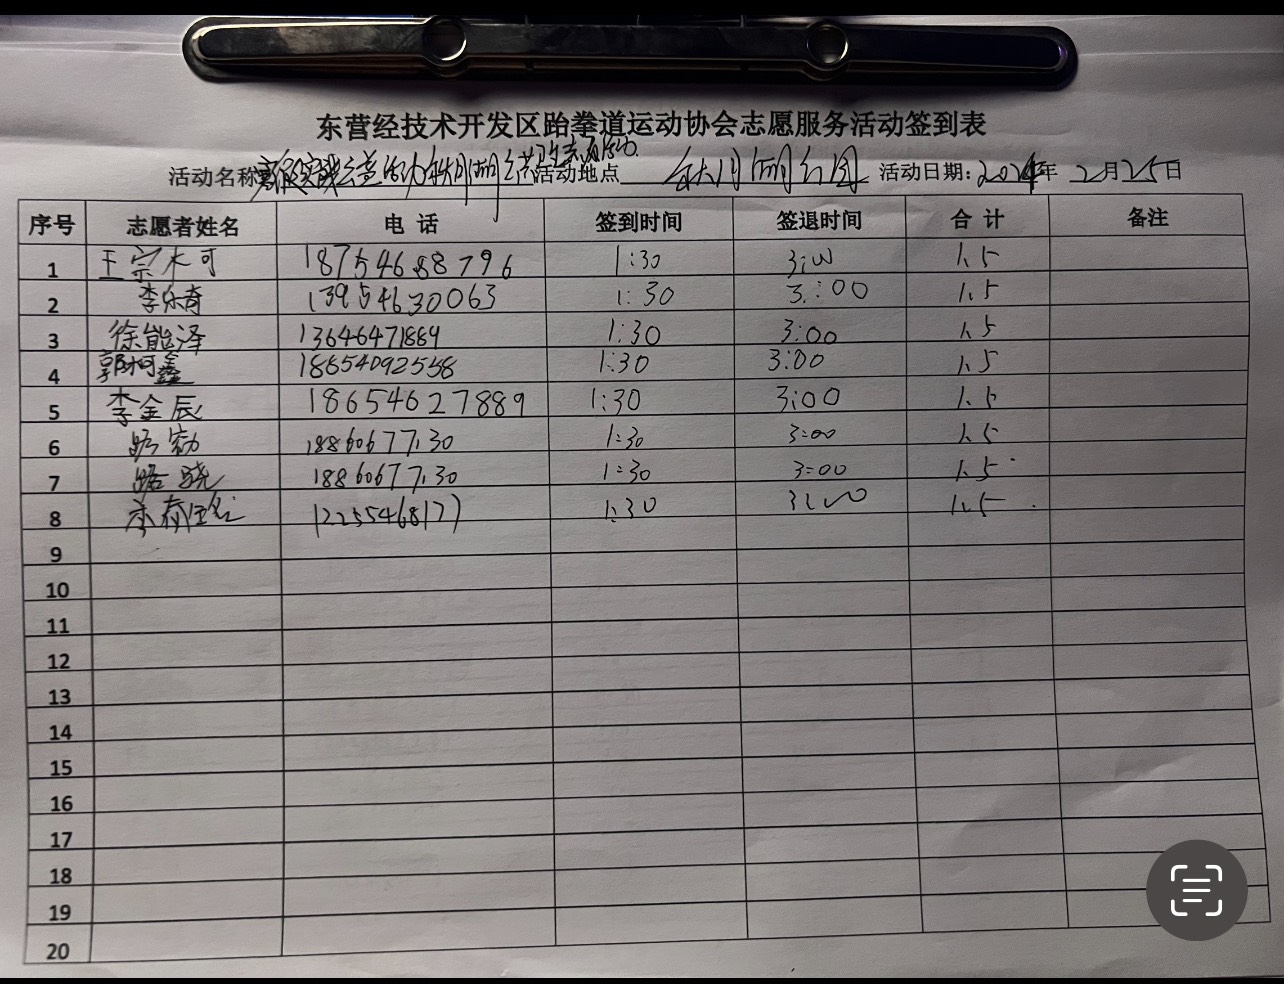 东营经技术开发区跆拳道运动协会志愿服务活动签到表
活动名称 活动地点 公园 活动日期: 2024年 2月25日
序号 志愿者姓名 电 话 签到时间 签退时间 合 计 备注
1 王宗木可 18754688796 1:30 3:00 1.5
2 李乐奇 13954630063 1:30 3:00 1.5
3 徐能泽 13646471889 1:30 3:00 1.5
4 郭柯鑫 18654092558 1:30 3:00 1.5
5 李金辰 18654627889 1:30 3:00 1.5
6 18860677130 1:30 3:00 1.5
7 路晓 18860677130 1:30 3:00 1.5
8 1:30 3:00 1.5
9
10
11
12
13
14
15
16
17
18
19
20